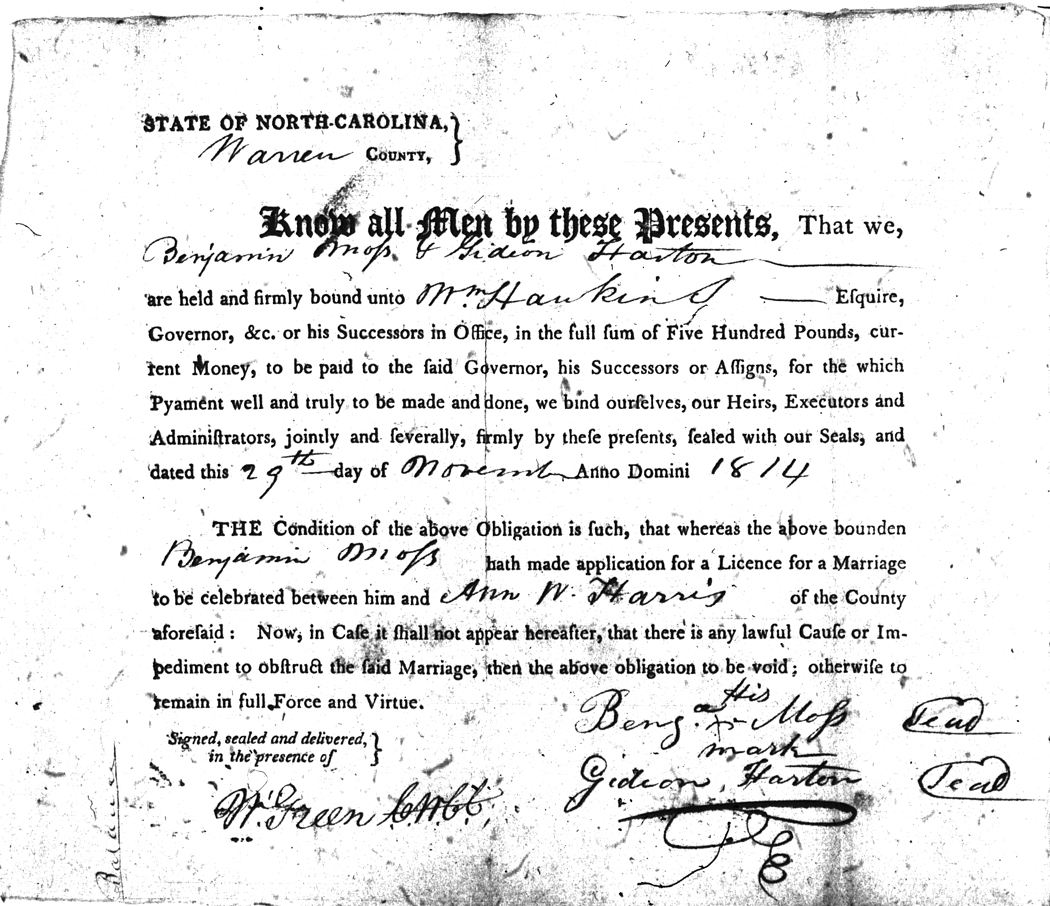 STATE OF NORTH-CAROLINA,
Warren COUNTY,
Know all Men by these Presents, That we,
Benjamin Moſs & Gideon Harton
are held and firmly bound unto Wm. Hawkins Eſquire,
Governor, &c. or his Succeſſors in Office, in the full ſum of Five Hundred Pounds, cur-
rent Money, to be paid to the ſaid Governor, his Succeſſors or Aſſigns, for the which
Pyament well and truly to be made and done, we bind ourſelves, our Heirs, Executors and
Adminiſtrators, jointly and ſeverally, firmly by theſe preſents, ſealed with our Seals, and
dated this 29th day of Novemb Anno Domini 1814
THE Condition of the above Obligation is ſuch, that whereas the above bounden
Benjamin Moſs hath made application for a Licence for a Marriage
to be celebrated between him and Ann W. Harris of the County
aforeſaid: Now, in Caſe it ſhall not appear hereafter, that there is any lawful Cauſe or Im-
pediment to obſtruct the ſaid Marriage, then the above obligation to be void; otherwiſe to
remain in full Force and Virtue.
His
Benj. Moſs Seal
mark
Signed, sealed and delivered,
in the presence of
Gideon Harton Seal
Wm. Green C.W.C.C.